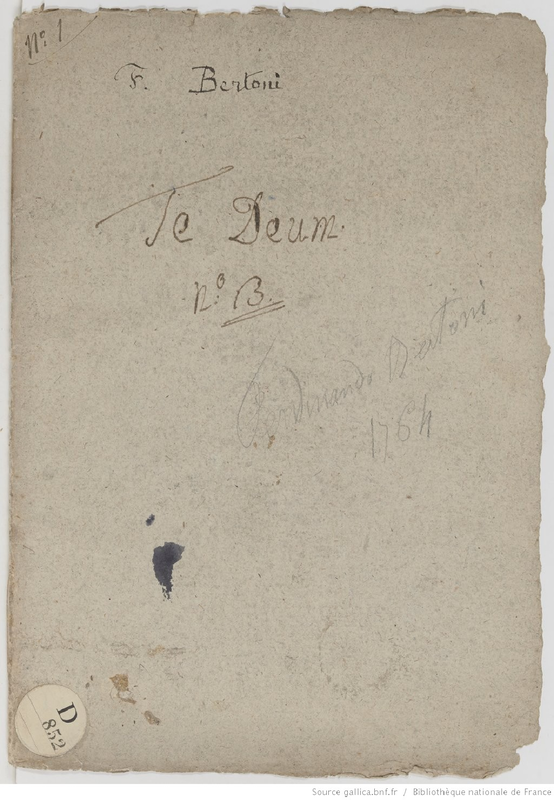 N.º 1
F. Bertoni
Te Deum.
N.º B.
Ferdinando Bertoni
1764
D
852
Source gallica.bnf.fr / Bibliothèque nationale de France